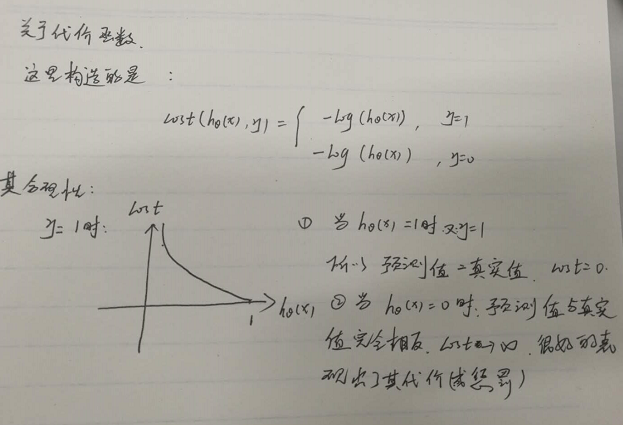 关于代价函数.
这里构造的是 :
cost(hθ(x), y) = { -log(hθ(x)), y=1
-log(hθ(x)), y=0
其合理性:
y=1时: cost
hθ(x)
1
① 当 hθ(x)=1时 又y=1
所以 预测值=真实值. cost=0.
② 当 hθ(x)=0时, 预测值与真实
值完全相反. cost→∞. 很好的表
现出了其代价(或惩罚)